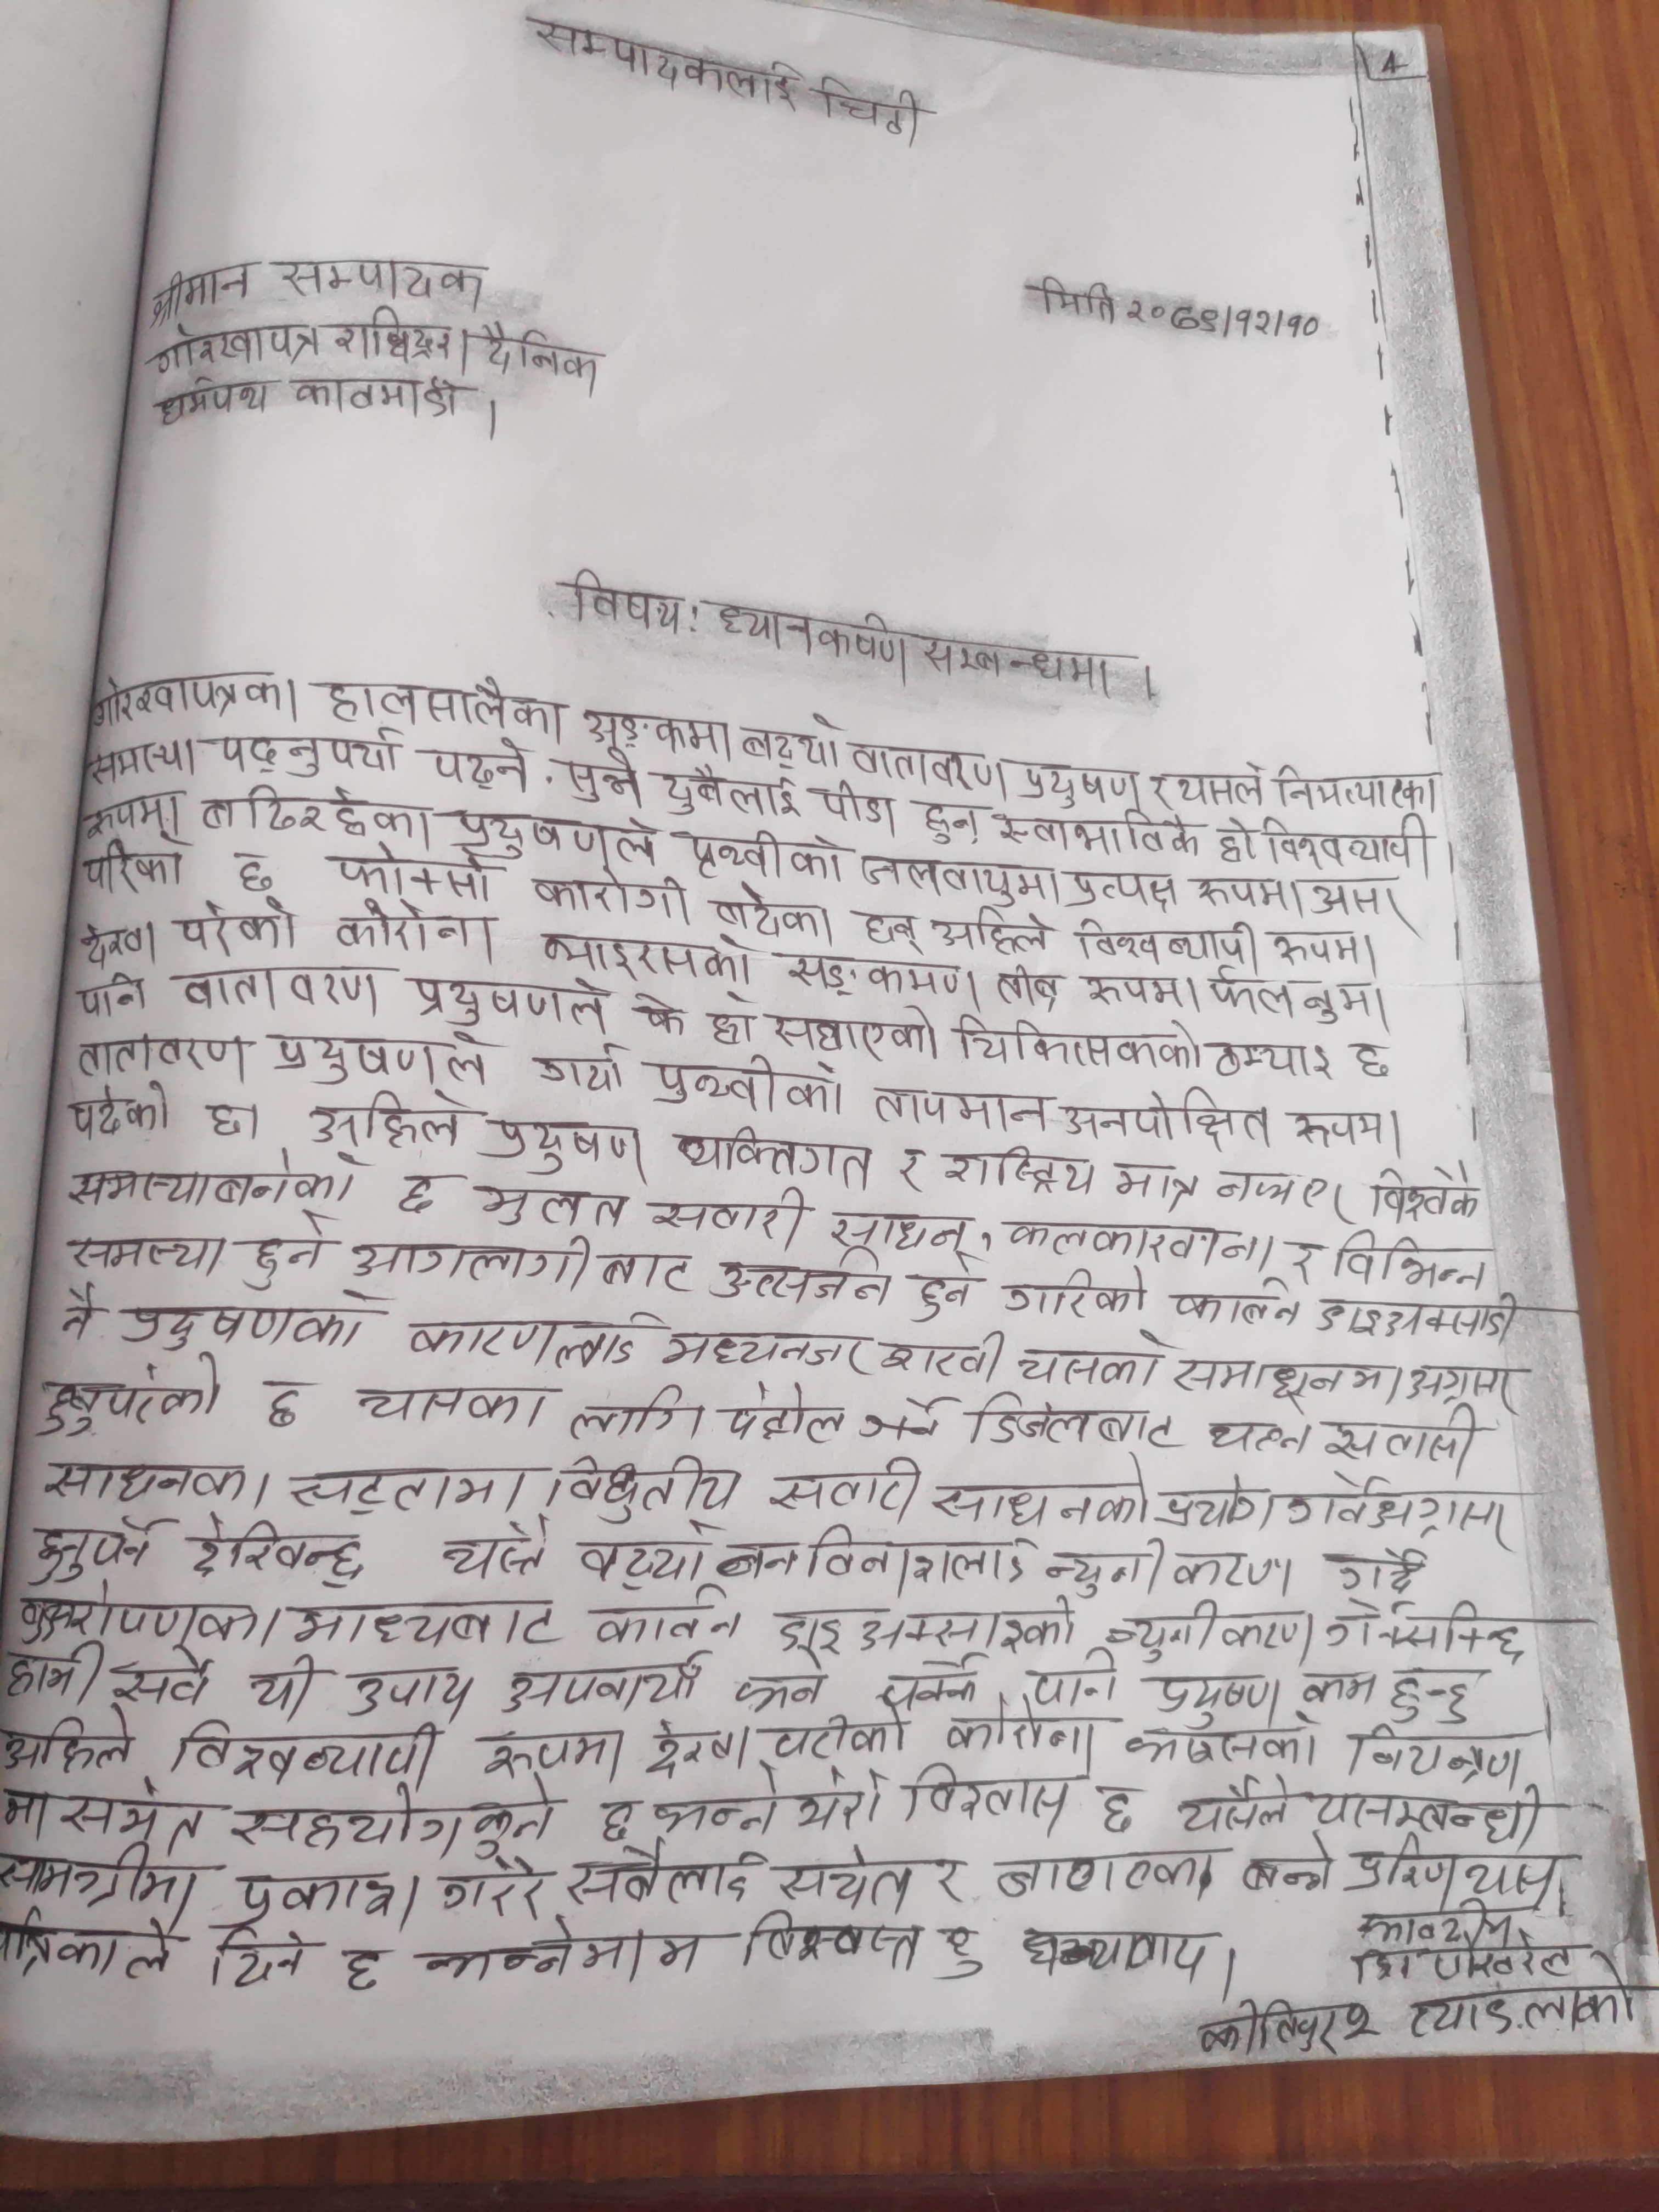 सम्पादकलाई चिठी
4
श्रीमान सम्पादक
मिति २०७९/१२/१०
गोरखापत्र राष्ट्रिय दैनिक
धर्मपथ काठमाडौ ।
विषय: ध्यानकर्षण सम्बन्धमा ।
गोरखापत्रका हालसालैका अङ्कमा बढ्यो वातावरण प्रदुषण र यसले निम्त्याएका
समस्या पढ्नुपर्यो पढ्ने, सुन्ने दुबैलाई पीडा हुनु स्वाभाविकै हो विश्वव्यापी
रूपमा बढिरहेका प्रदुषणले पृथ्वीको जलवायुमा प्रत्यक्ष रूपमा असर
परेको छ फोक्सो कारोगी बढेका छन् अहिले विश्वव्यापी रूपमा
देखा परेको कोरोना भाइरसको सङ्कमण तीब्र रूपमा फैलनुमा
पनि वातावरण प्रदुषणले के हो सघाएको चिकित्सकको ठम्याइ छ
वातावरण प्रदुषणले गर्यो पृथ्वीको तापमान अनपेक्षित रूपमा
बढेको छ। अहिले प्रदुषण व्यक्तिगत र राष्ट्रिय मात्र नभए विश्वकै
समस्याबनेको छ मुलत सवारी साधन, कलकारखाना र विभिन्न
समस्या हुने आगलागीबाट उत्सर्जन हुने गरिको कार्वन डाइअक्साडी
नै प्रदुषणको कारणलाई मध्यनजर राखी यसको समाधानमा अग्रसर
हुनुपरेको छ यसका लागि पेट्रोल डिजेलबाट चल्न सवारी
साधनका सट्टामा विधुतीय सवारी साधनको प्रयोग गर्न अग्रसर
हुनुपर्ने देखिन्छ यस्तै बढ्यो बन विनाशलाई न्युनीकरण गर्दै
बृक्षरोपणका माध्यबाट कार्वन डाइअक्साइको न्युनीकरण गर्नसकिन्छ
हामी सवै यी उपाय अपनायौ भने पक्कै पनि प्रदुषण कम हुन्छ
अहिले विश्वव्यापी रूपमा देखा परेको कोरोना भाइरसको नियन्त्रण
मा समेत सहयोग हुने छ भन्ने मेरो विश्वास छ यसैले यससम्बन्धी
सामग्रीमा प्रकाश गरेर सबैलाई सचेत र बन्ने प्रेरणा यस
पत्रिकाले दिने छ भन्नेमा म विश्वस्त छु धन्यवाद ।
भवदीय
पोखरेल